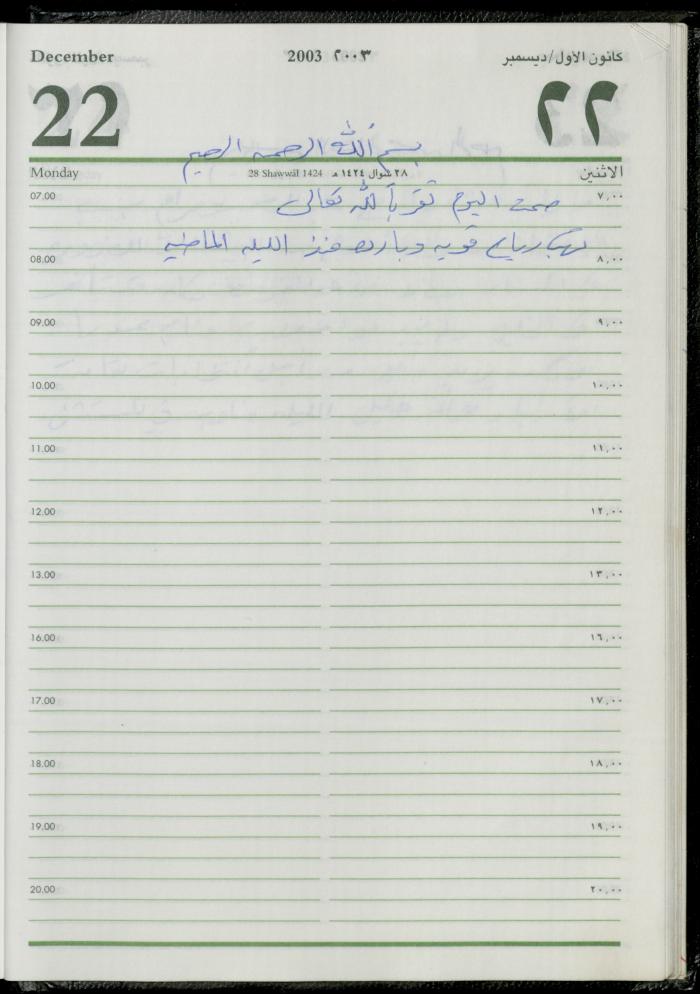 December 2003 ٢٠٠٣ كانون الأول/ديسمبر
22 ٢٢
بسم الله الرحمن الرحيم
Monday 28 Shawwal 1424 ٢٨ شوال ١٤٢٤ هـ الاثنين
07.00 ٧,٠٠
صمت اليوم تقرباً لله تعالى
تهب رياح قويه وبارده منذ الليله الماضيه
08.00 ٨,٠٠
09.00 ٩,٠٠
10.00 ١٠,٠٠
11.00 ١١,٠٠
12.00 ١٢,٠٠
13.00 ١٣,٠٠
16.00 ١٦,٠٠
17.00 ١٧,٠٠
18.00 ١٨,٠٠
19.00 ١٩,٠٠
20.00 ٢٠,٠٠